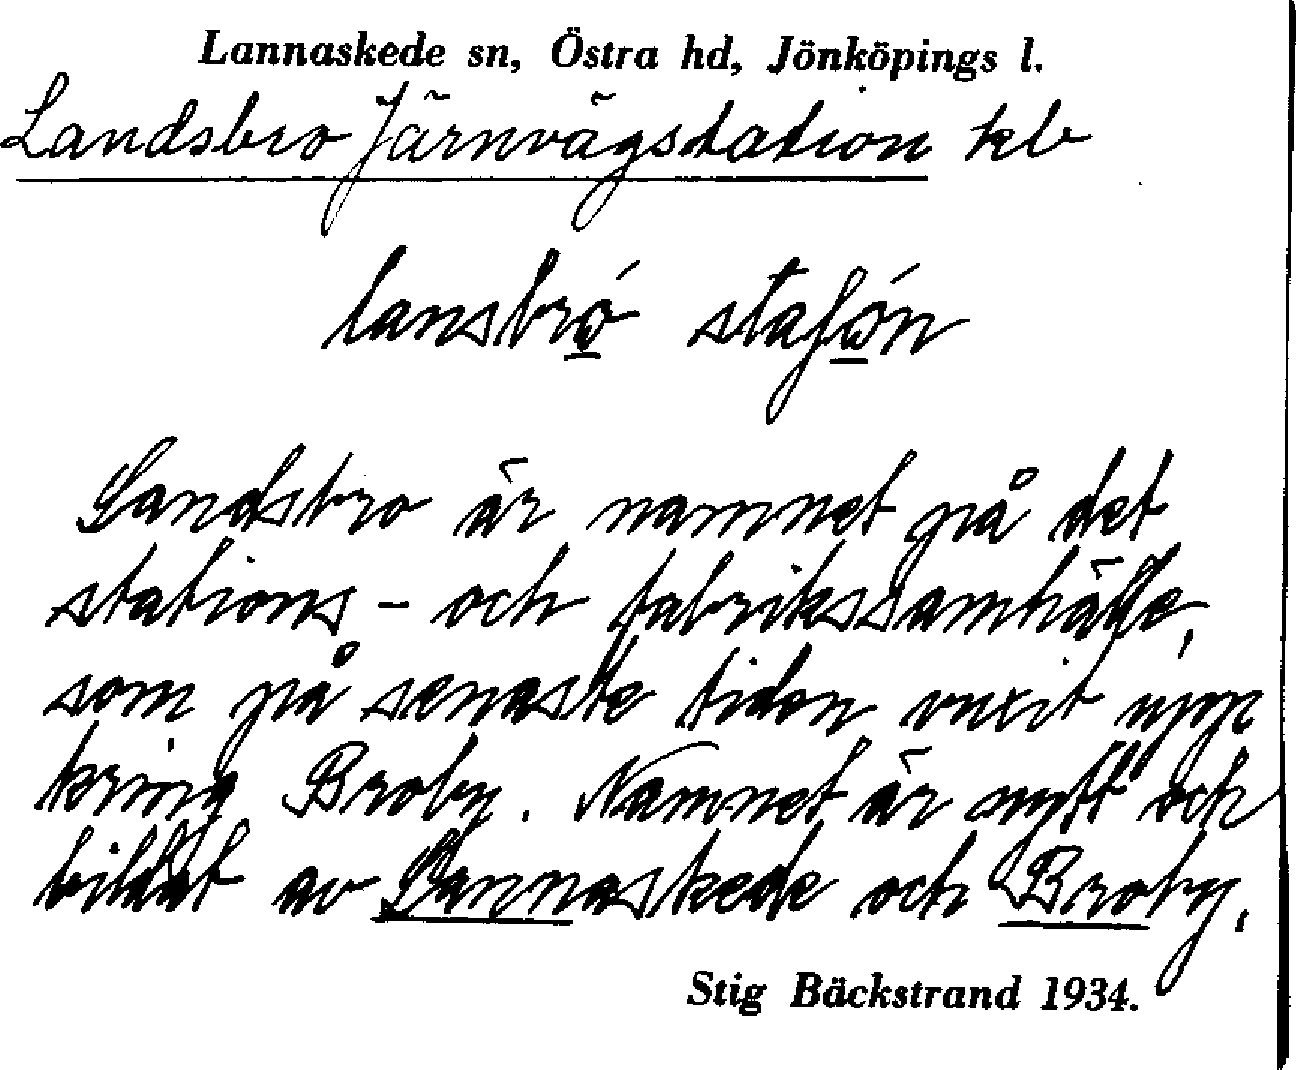 Lannaskede sn, Östra hd, Jönköpings l.
Landsbro Järnvägstation kb
lansbró staʃón
Landsbro är namnet på det
stations- och fabrikssamhälle,
som på senaste tiden vuxit upp
kring Broby. Namnet är nytt och
bildat av Lannaskede och Broby.
Stig Bäckstrand 1934.